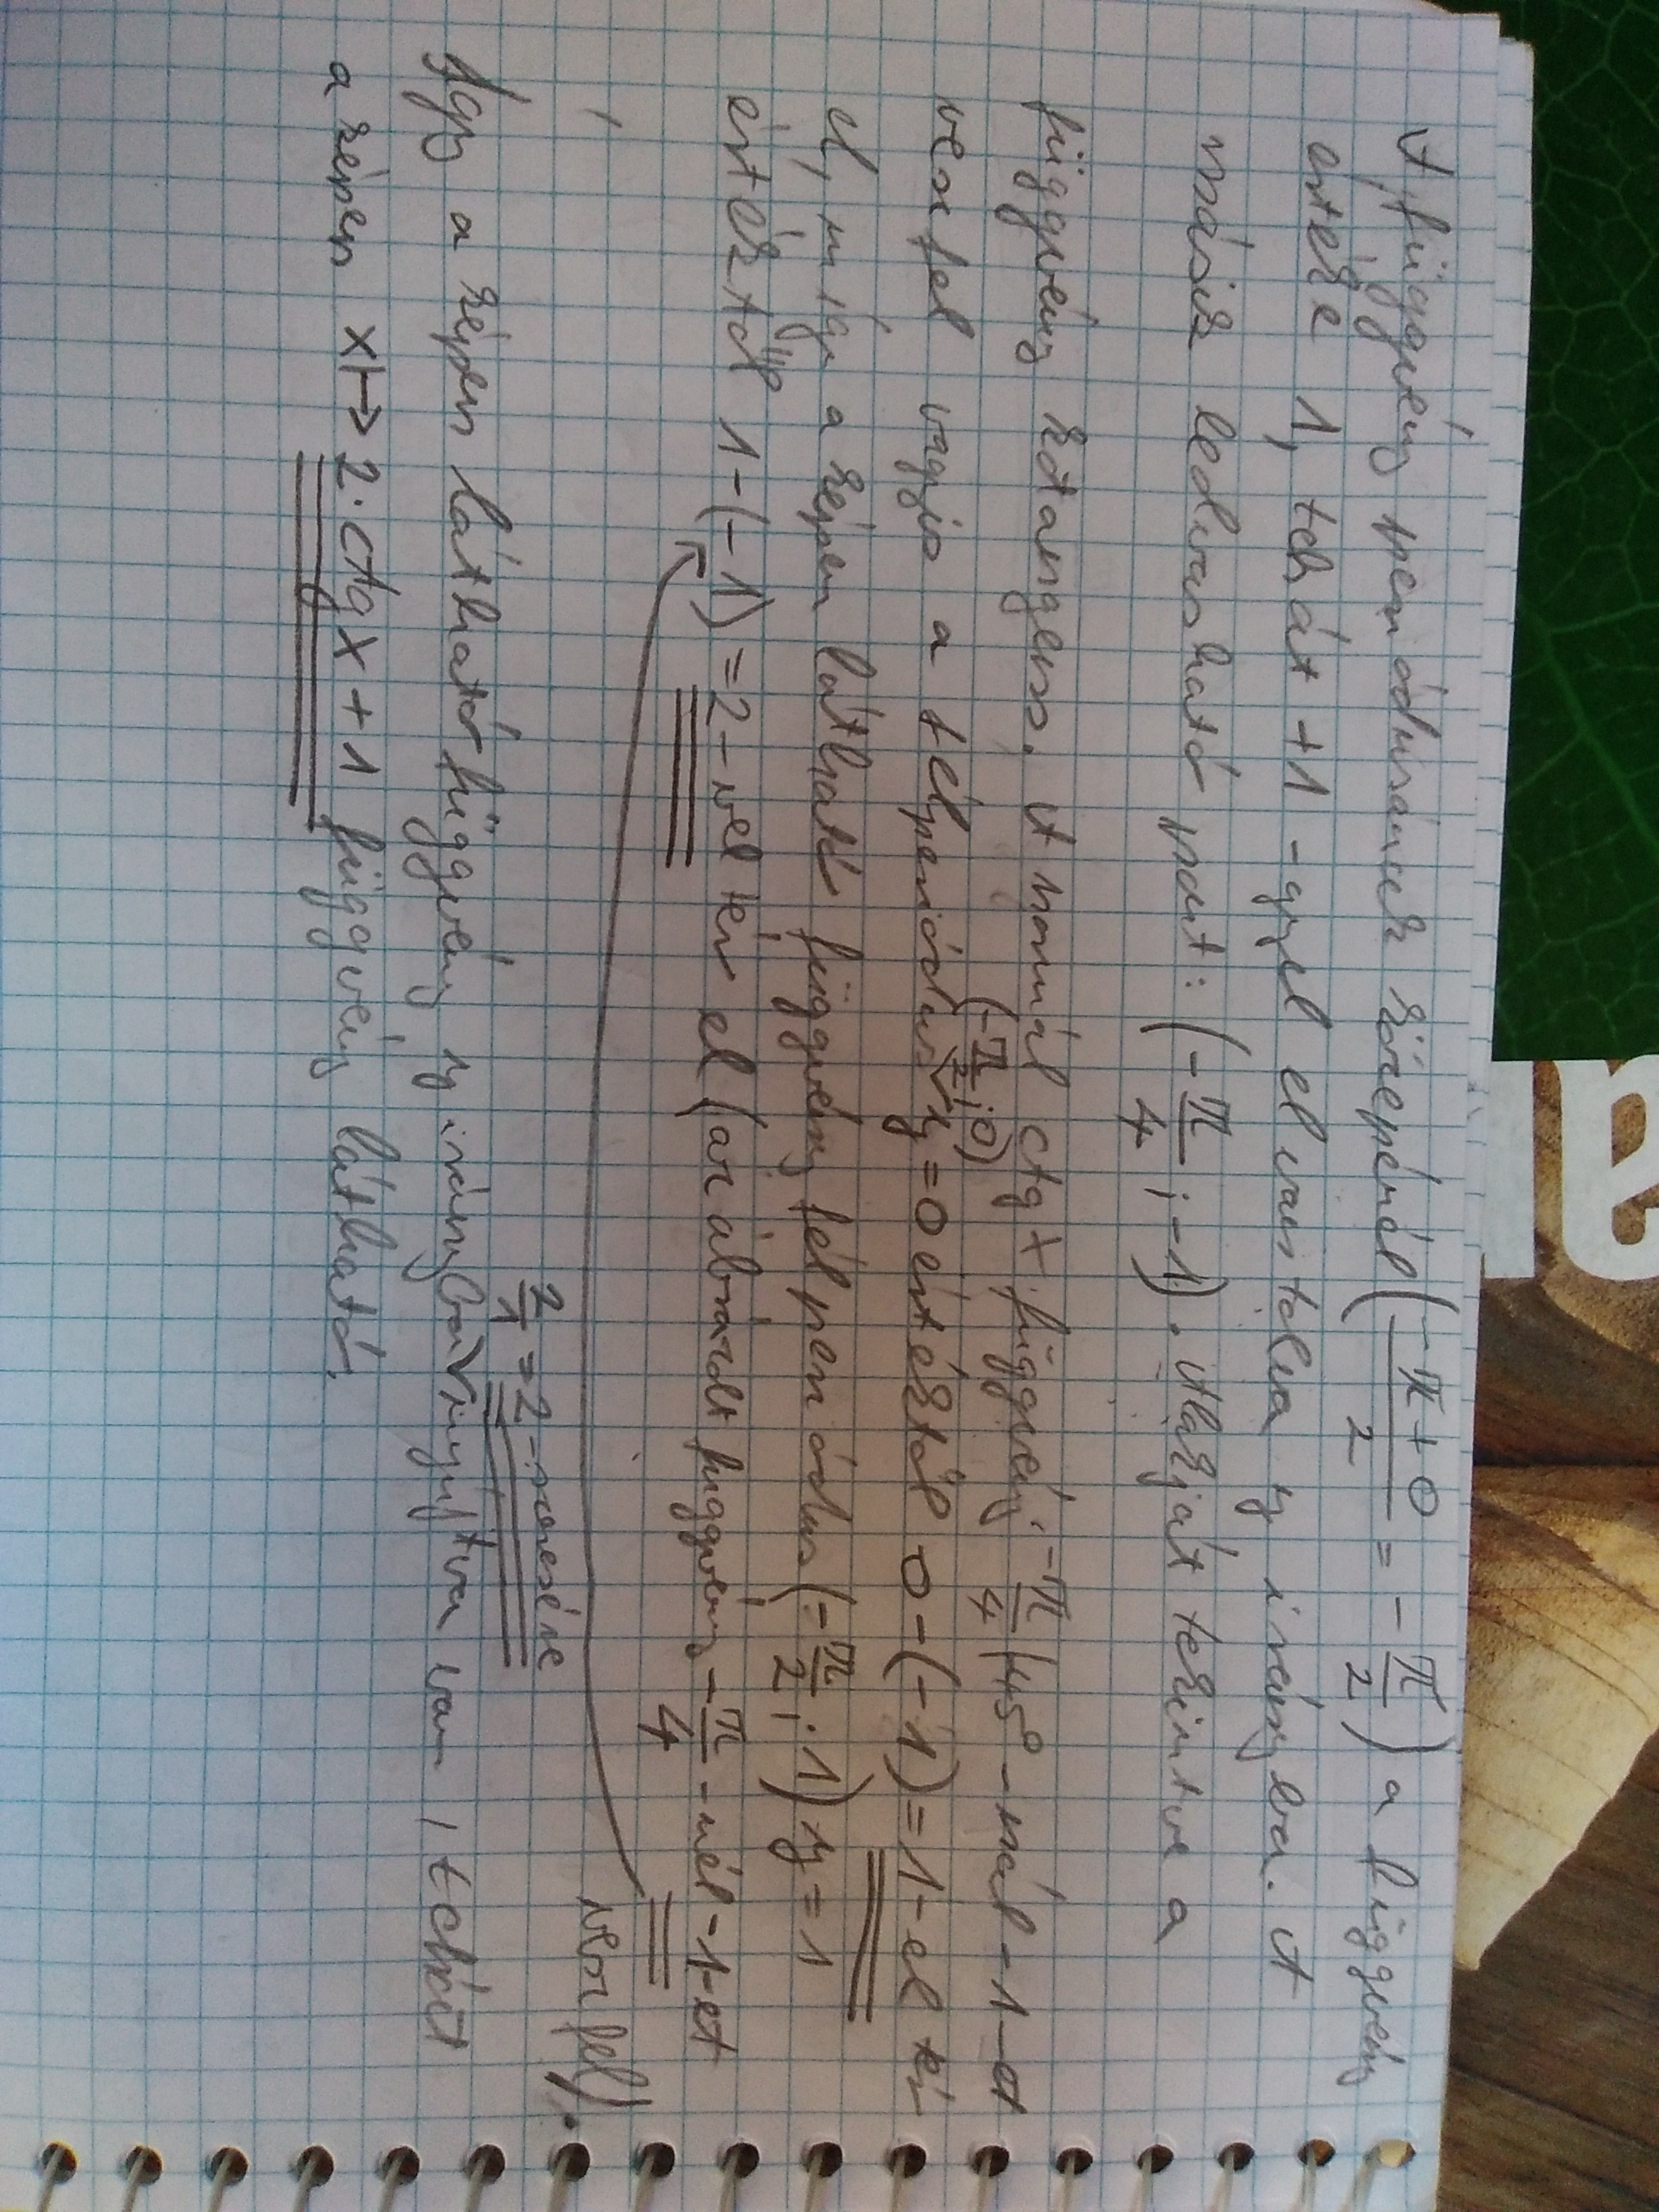 A függvény periódusának közepénél (-π+0/2 = -π/2) a függvény
értéke 1, tehát +1-gyel el van tolva y irányban. A
másik leolvasható pont: (-π/4; -1). Alakját tekintve a
függvény kotangens. A normál ctg x függvény -π/4 (45°-nál -1-et
vesz fel vagyis a félperiódus (-π/2; 0) y=0 értéktől 0-(-1)=1-el tér
el, míg a képen látható függvény félperiódus (-π/2; 1) y=1
értéktől 1-(-1)=2-vel tér el (az ábrázolt függvény -π/4-nél -1-et
vesz fel).
Így a képen látható függvény y irányban 2/1=2-szeresére nyújtva van, tehát
a képen x↦2·ctgx+1 függvény látható.
a